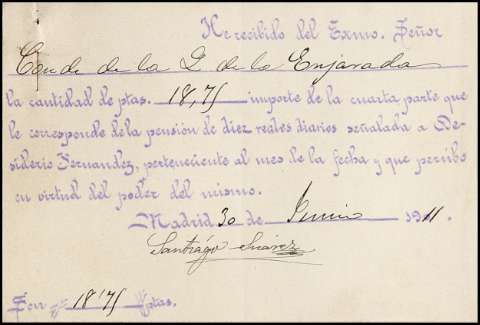 He recibido del Excmo. Señor
Conde de la Q de la Enjarada
la cantidad de ptas. 18,75 importe de la cuarta parte que
le corresponde de la pensión de diez reales diarios señalada a De-
siderio Fernandez, perteneciente al mes de la fecha y que percibo
en virtud del poder del mismo.
Madrid 30 de Junio 1911.
Santiago Suárez
Son 18'75 ptas.